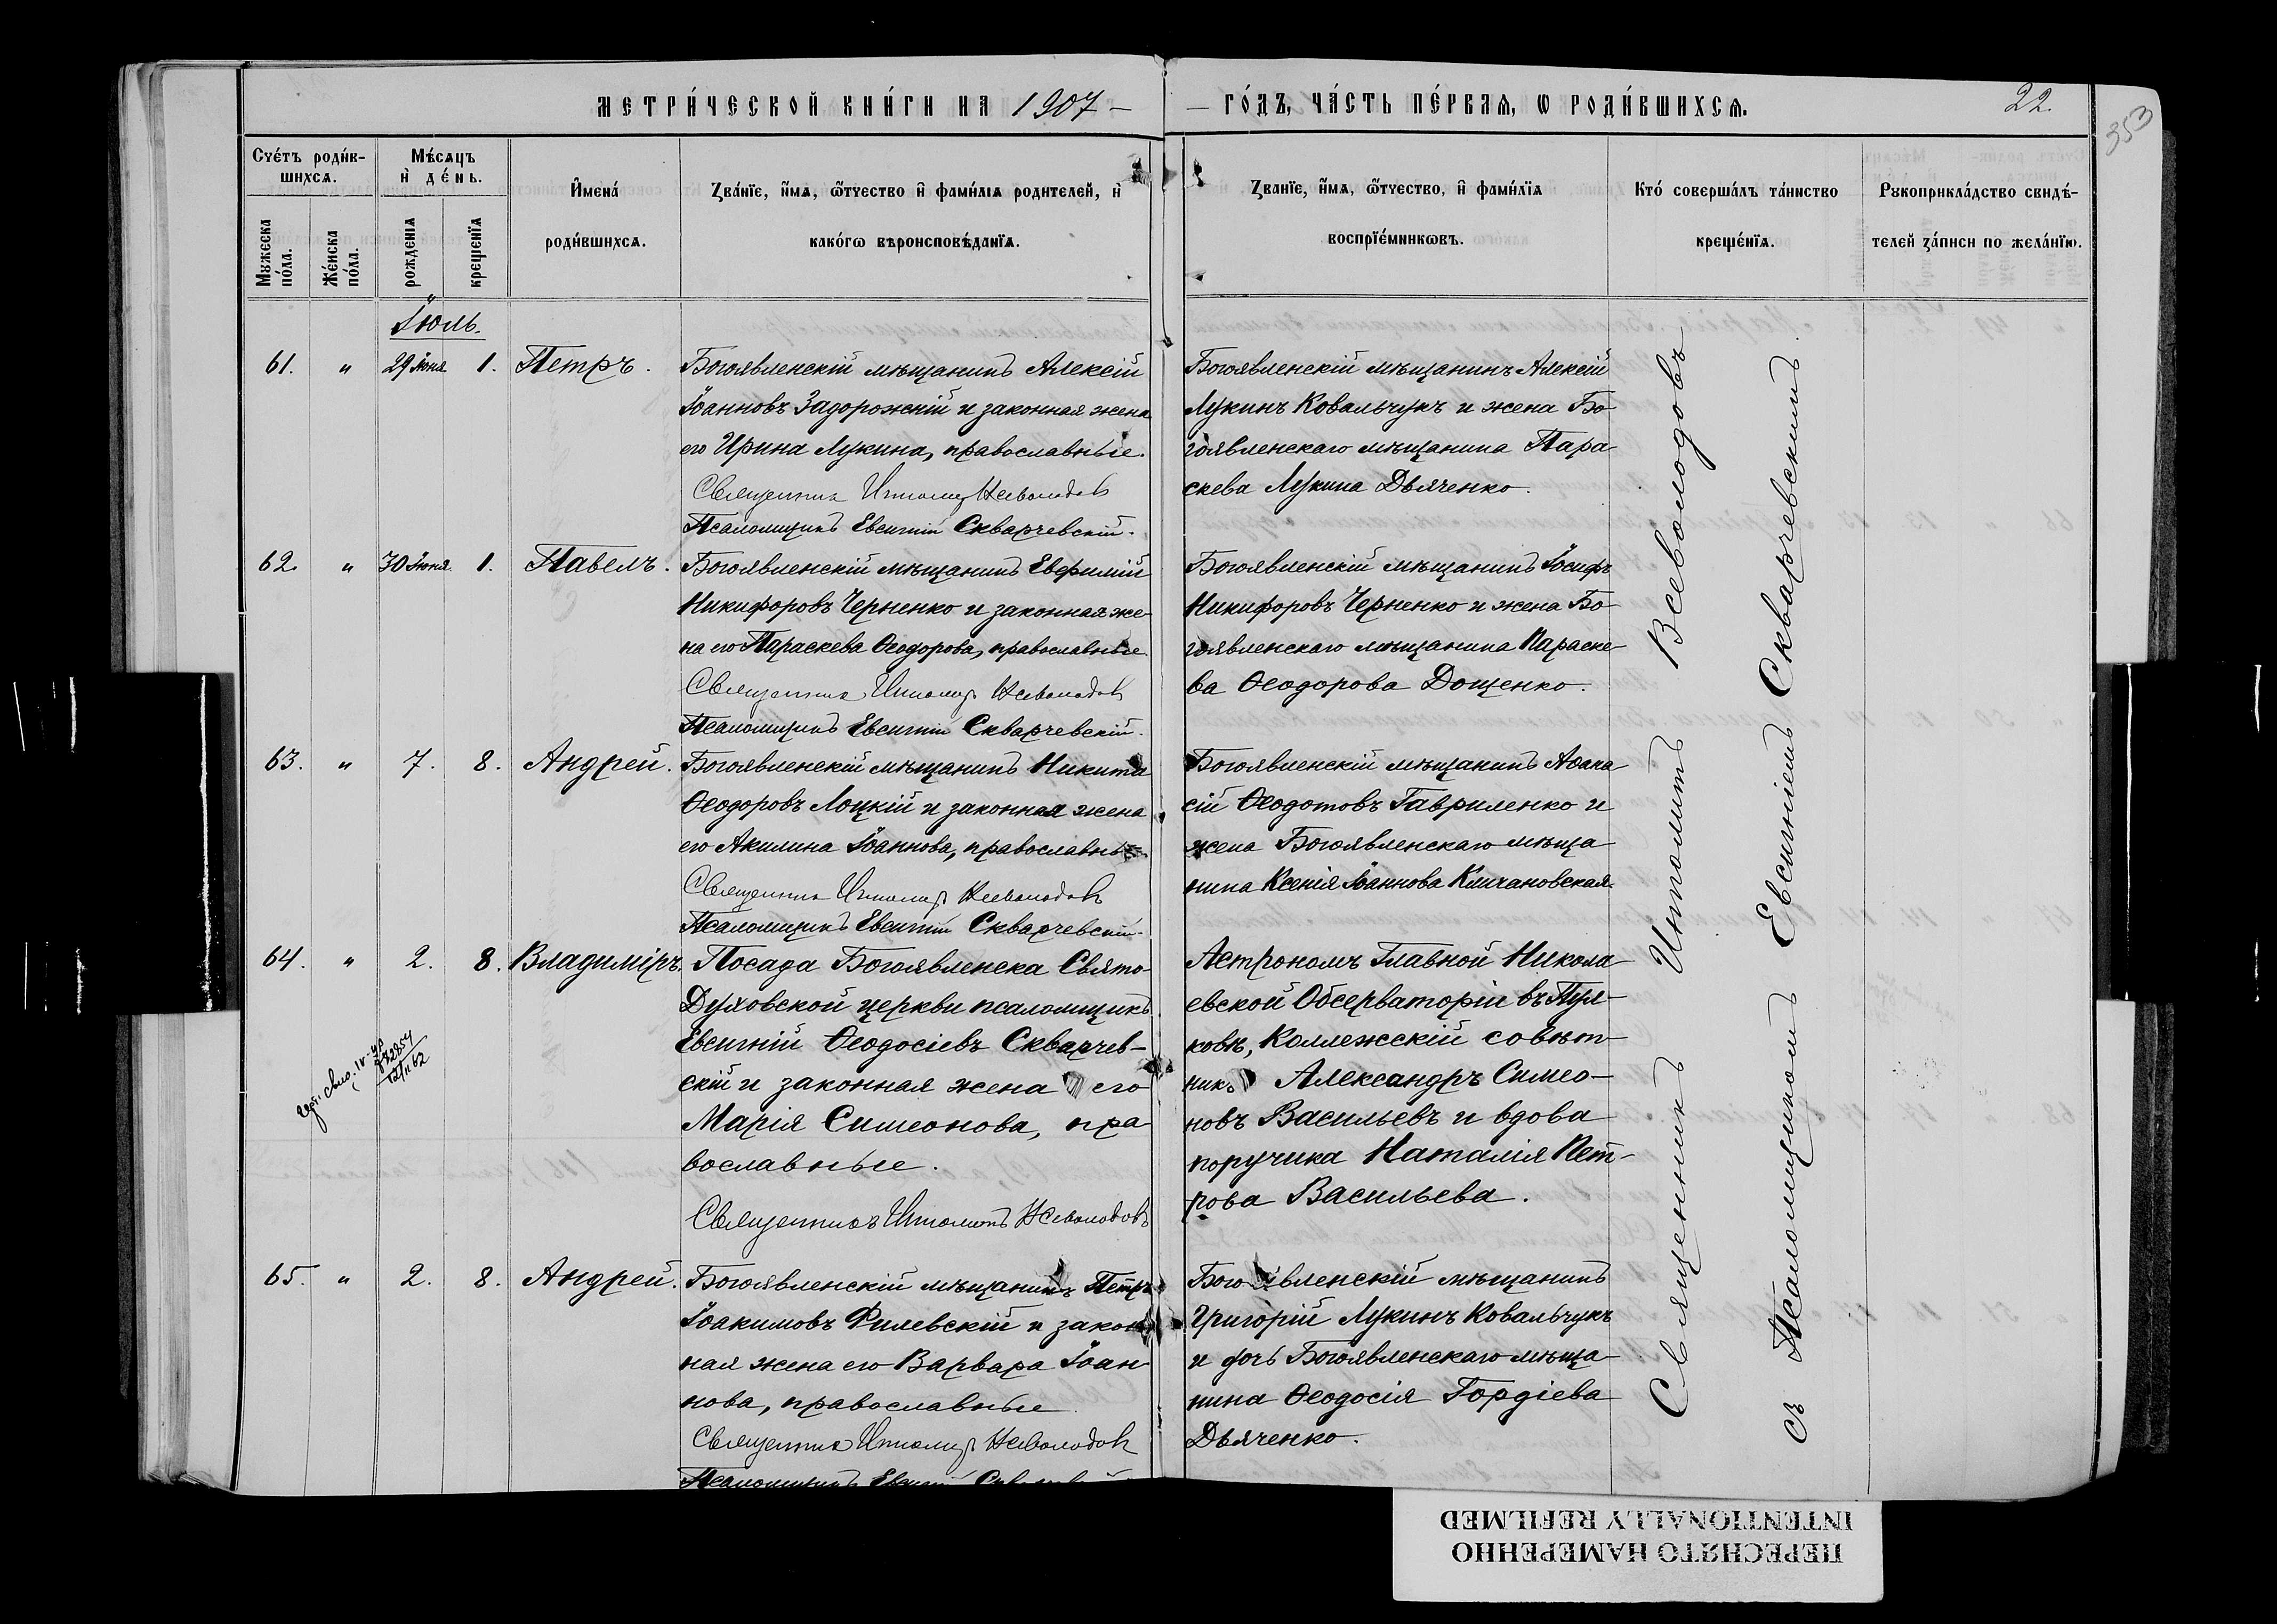 МЕТРИ́ЧЕСКОЙ КНИ́ГИ НА 1907 —
— ГО́ДЪ, ЧА́СТЬ ПЕ́РВАѦ, Ѡ РОДИ́ВШИХСѦ.
22.
353
Счéтъ роди́вшихсѧ.
Мѣ́сѧцъ и҆ дéнь.
Мꙋжеска по́ла.
Жéнска по́ла.
рожденїѧ
крещенїѧ
И҆мена́ роди́вшихсѧ.
Ꙁва́нїе, и҆́мѧ, ѻ҆́тчество и҆ фами́лїѧ родителей, и҆ како́гѡ вѣроисповѣ́данїѧ.
Ꙁванїе, и҆́мѧ, ѻ҆́тчество, и҆ фами́лїѧ воспрїе́мникѡвъ.
Кто́ соверша́лъ та́инство крещéнїѧ.
Рꙋкоприкла́дство свидѣ́телей ꙁа́писи по жела́нїю.
Іюль.
61. „ 29 Іюня 1. Петръ.
Богоявленскій мѣщанинъ Алексій
Іоанновъ Задорожній и законная жена
его Ирина Лукина, православные.
Священник Ипполит Всеволодов
Псаломщикъ Евгеній Скварчевскій.
Богоявленскій мѣщанинъ Алексій
Лукинъ Ковальчукъ и жена Бо-
гоявленскаго мѣщанина Пара-
скева Лукина Дьяченко.
62. „ 30 Іюня 1. Павелъ.
Богоявленскій мѣщанинъ Евфимій
Никифоровъ Черненко и законная же-
на его Параскева Ѳеодорова, православные
Священник Ипполит Всеволодов
Псаломщикъ Евгеній Скварчевскій.
Богоявленскій мѣщанинъ Іосифъ
Никифоровъ Черненко и жена Бо-
гоявленскаго мѣщанина Параске-
ва Ѳеодорова Дощенко.
63. „ 7. 8. Андрей.
Богоявленскій мѣщанинъ Никита
Ѳеодоровъ Лоцкій и законная жена
его Акилина Іоаннова, православные
Священник Ипполит Всеволодов
Псаломщикъ Евгеній Скварчевскій.
Богоявленскій мѣщанинъ Аѳана-
сій Ѳеодотовъ Гавриленко и
жена Богоявленскаго мѣща-
нина Ксенія Іоаннова Климановская.
64. „ 2. 8. Владиміръ.
Посада Богоявленска Свято-
Духовской церкви псаломщикъ
Евгеній Ѳеодосіевъ Скварчев-
скій и законная жена его
Марія Симеонова, пра-
вославные.
Священникъ Ипполитъ Всеволодовъ
Астрономъ Главной Никола-
евской Обсерваторіи въ Пул-
ковѣ, Коллежскій совѣт-
никъ Александръ Симео-
новъ Васильевъ и вдова
поручика Наталія Пет-
рова Васильева.
65. „ 2. 8. Андрей.
Богоявленскій мѣщанинъ Петръ
Іоакимовъ Филевскій и закон-
ная жена его Варвара Іоан-
нова, православные
Священник Ипполит Всеволодов
Псаломщикъ Евгеній
Богоявленскій мѣщанинъ
Григорій Лукинъ Ковальчукъ
и дочь Богоявленскаго мѣща-
нина Ѳеодосія Гордіева
Дьяченко.
Священникъ Ипполитъ Всеволодовъ
съ Псаломщикомъ Евгеніемъ Скварчевскимъ.
ПЕРЕСНЯТО НАМЕРЕННО
INTENTIONALLY REFILMED